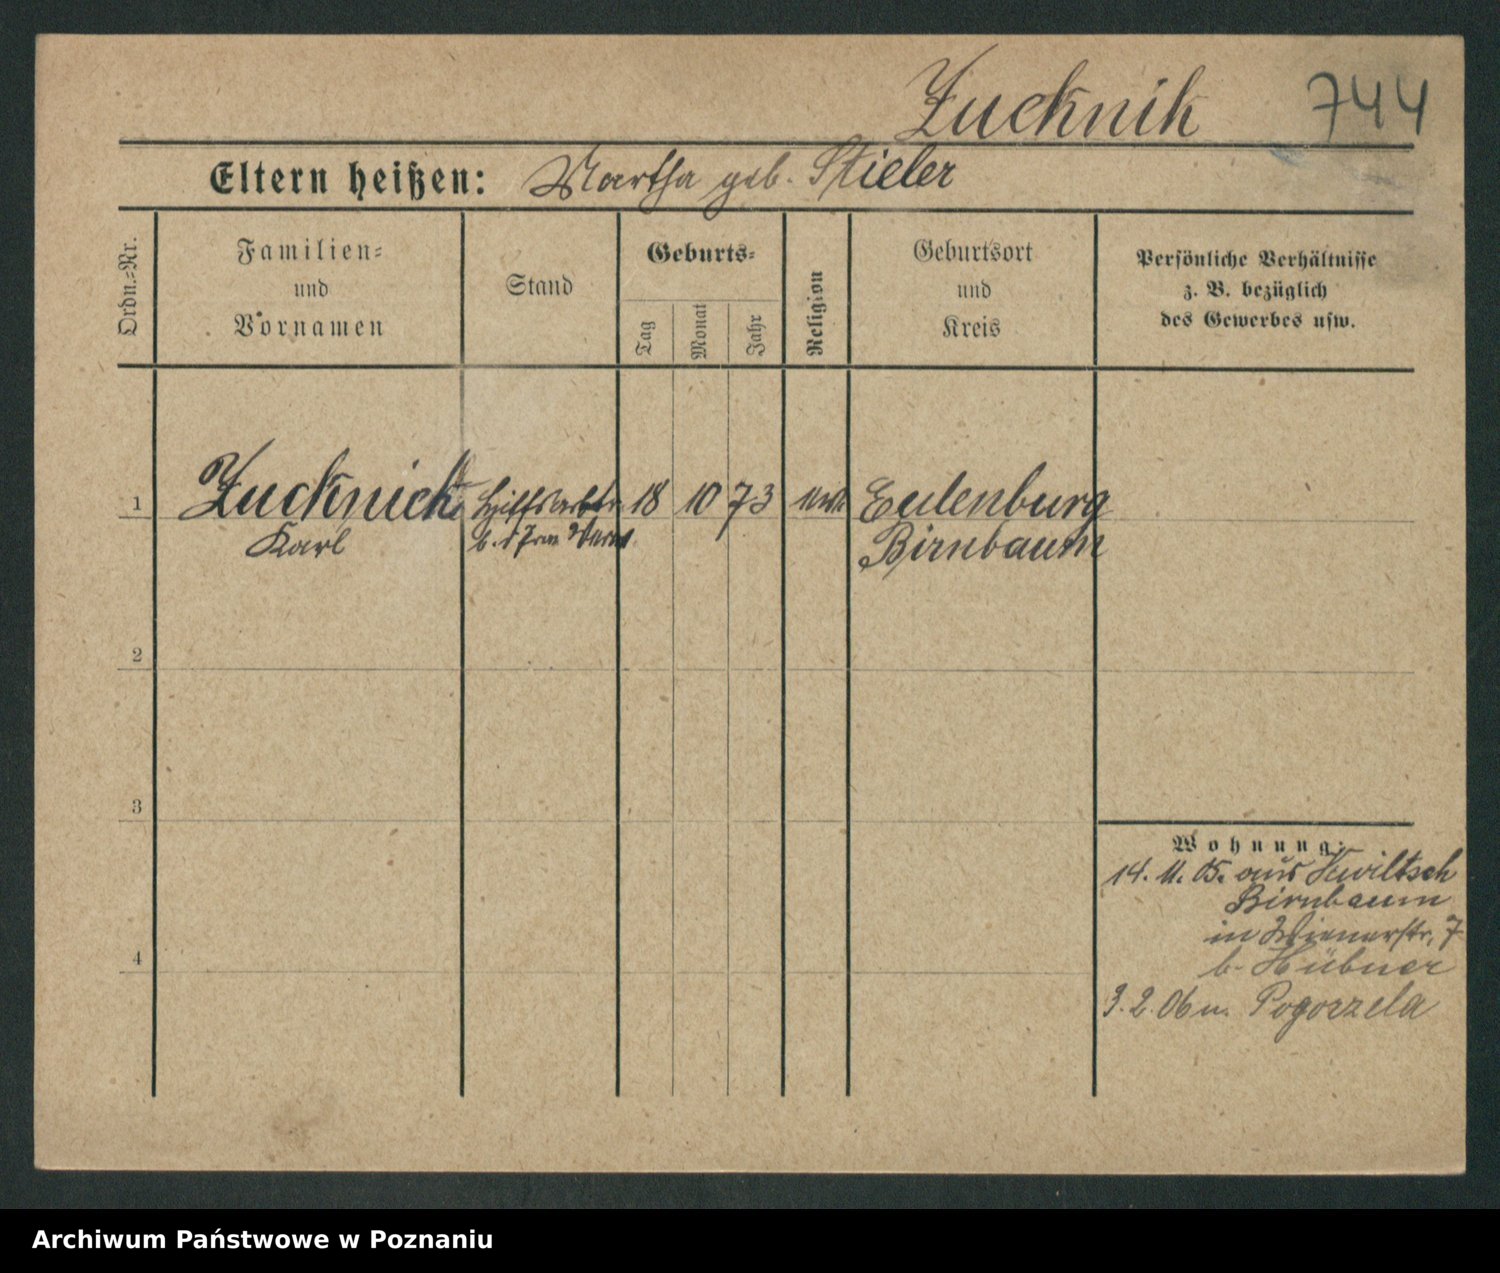 Zucknik 744
Eltern heißen: Martha geb. Stieler
Ordn.=Nr.
Familien=
und
Vornamen
Stand
Geburts=
Tag
Monat
Jahr
Religion
Geburtsort
und
Kreis
Persönliche Verhältnisse
z. B. bezüglich
des Gewerbes usw.
1 Zucknick Hilfsarbtr. 18 10 73 Eulenburg
Karl b. d. Birnbaum
2
3
4
Wohnung:
14. 11. 05. aus Kwiltsch
Birnbaum
in Wienerstr. 7
b. Hübner
3. 2. 06 n. Pogorzela
Archiwum Państwowe w Poznaniu